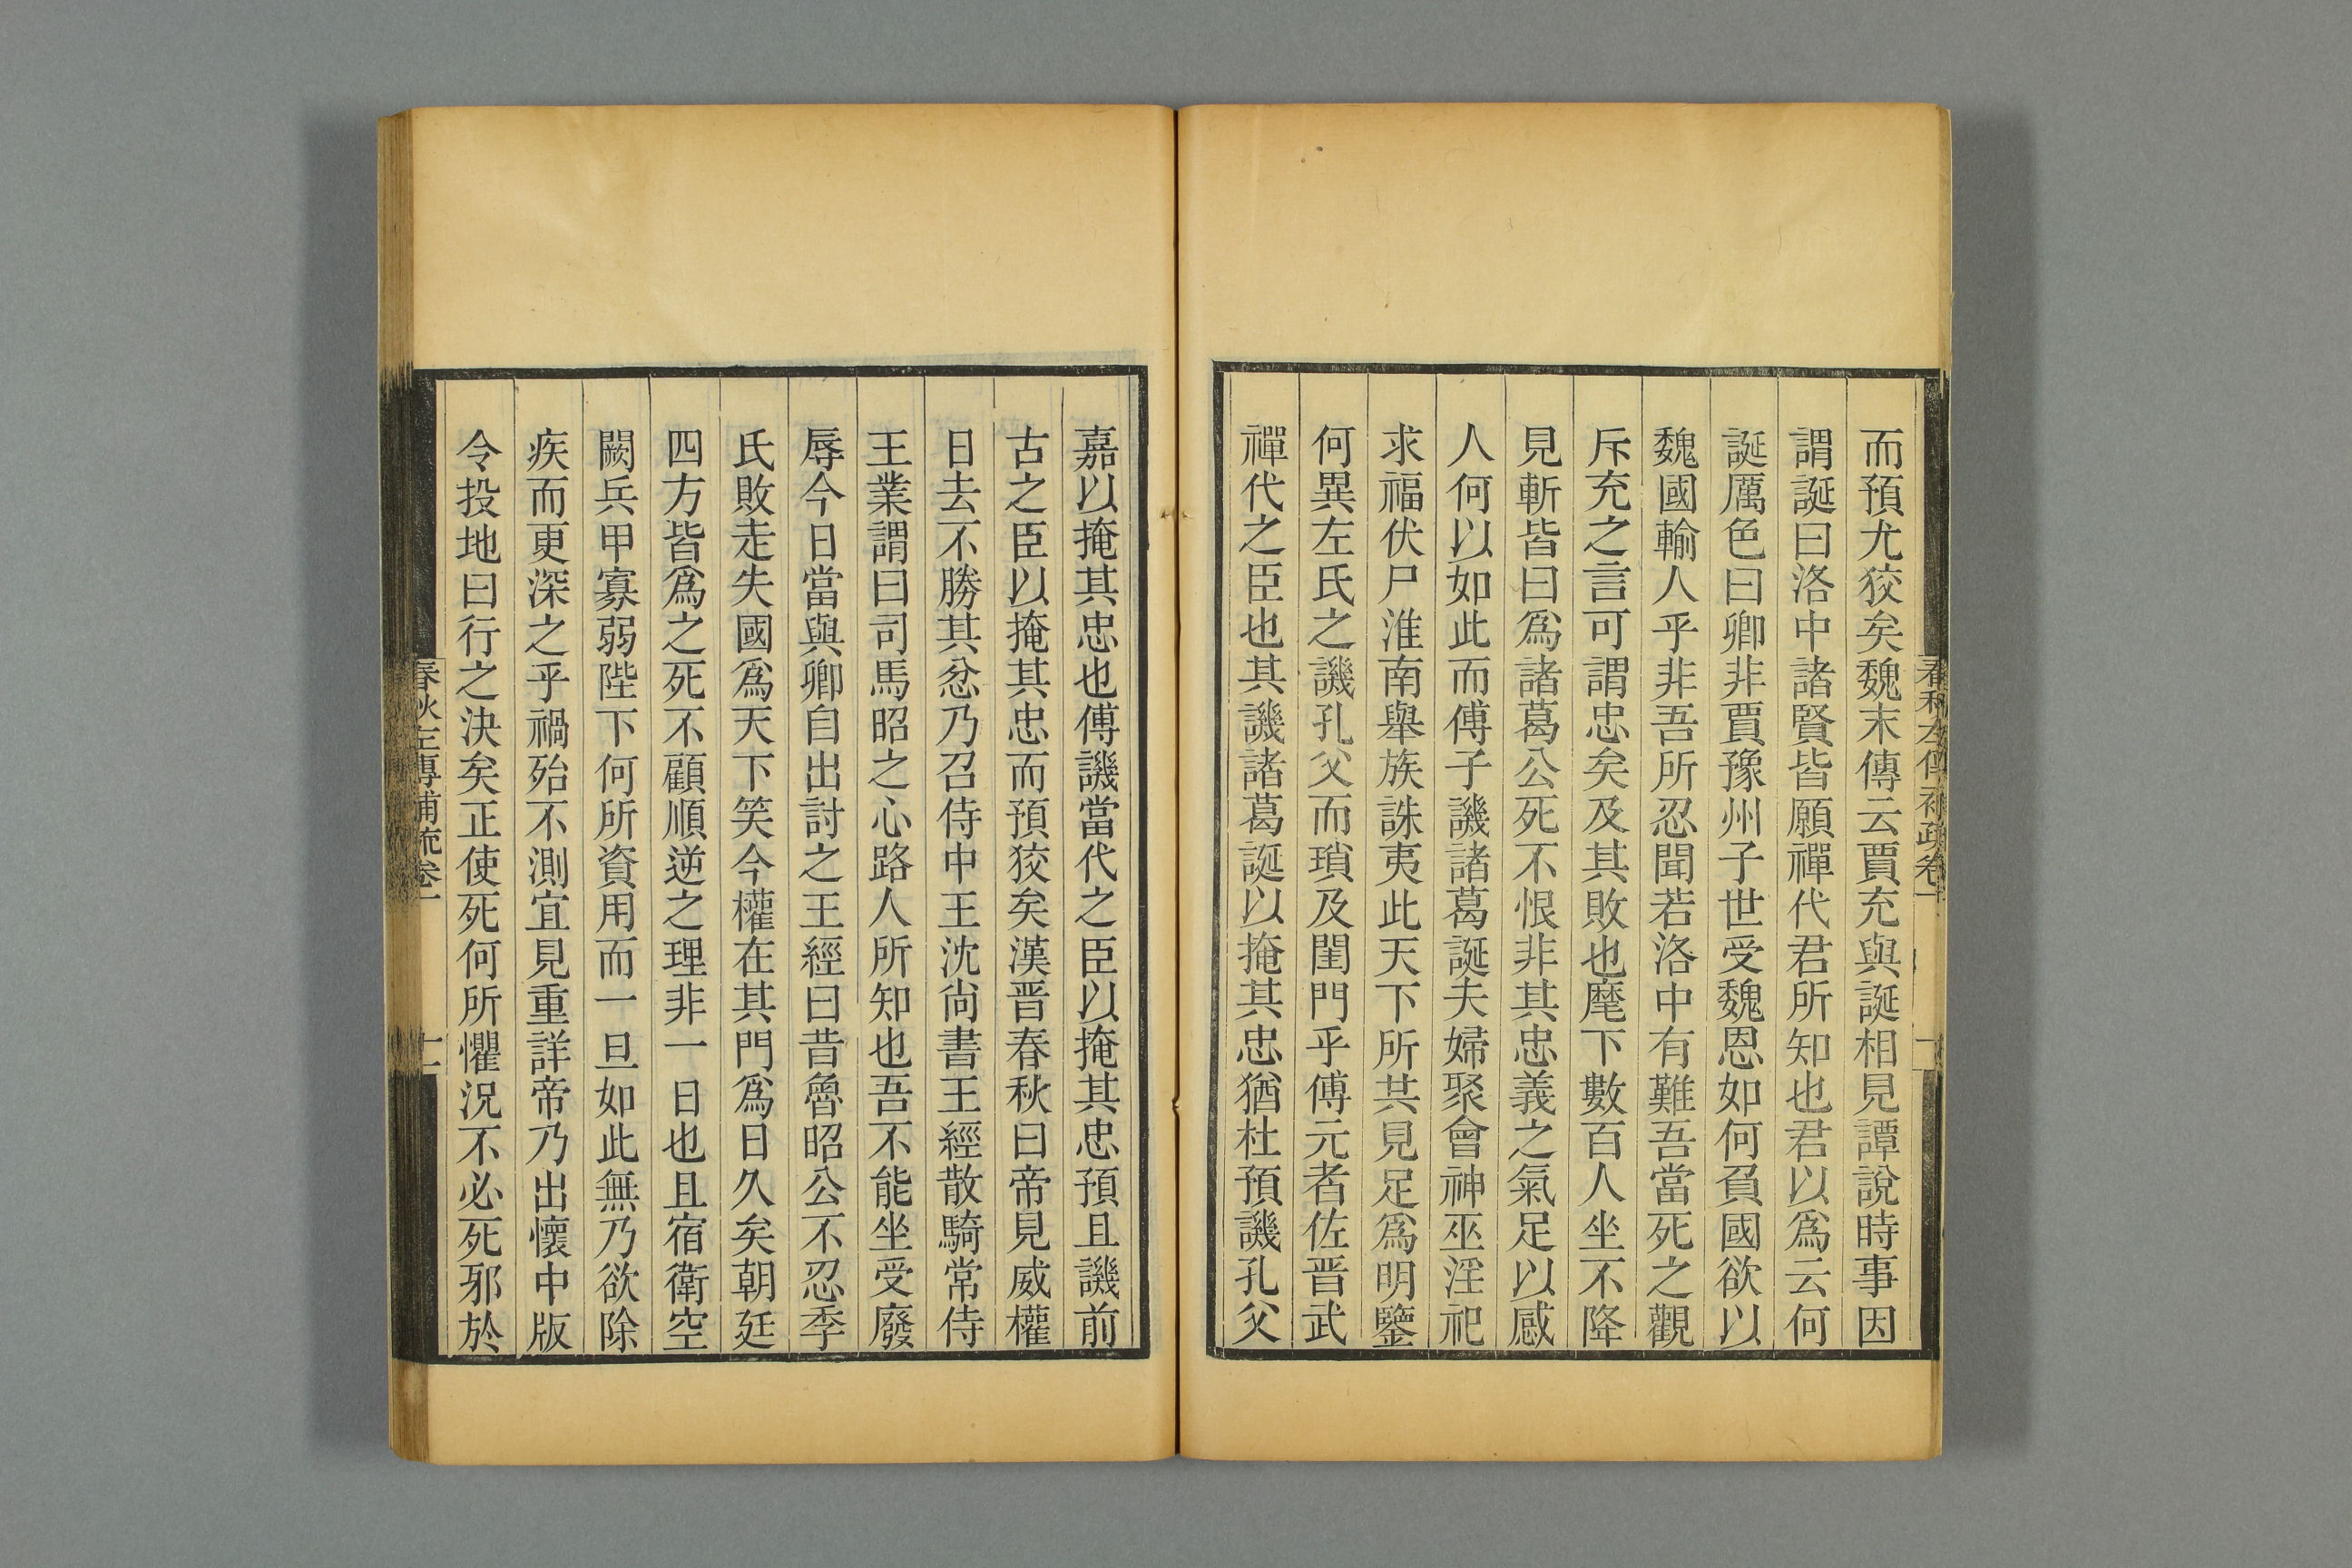 春秋左傳補疏卷一
而預尤狡矣魏末傳云賈充與誕相見譚說時事因
謂誕曰洛中諸賢皆願禪代君所知也君以爲云何
誕厲色曰卿非賈豫州子世受魏恩如何負國欲以
魏國輸人乎非吾所忍聞若洛中有難吾當死之觀
斥充之言可謂忠矣及其敗也麾下數百人坐不降
見斬皆曰爲諸葛公死不恨非其忠義之氣足以感
人何以如此而傅子譏諸葛誕夫婦聚會神巫淫祀
求福伏尸淮南舉族誅夷此天下所共見足爲明鑒
何異左氏之譏孔父而瑣及閨門乎傅元者佐晋武
禪代之臣也其譏諸葛誕以掩其忠猶杜預譏孔父
嘉以掩其忠也傅譏當代之臣以掩其忠預且譏前
古之臣以掩其忠而預狡矣漢晋春秋曰帝見威權
日去不勝其忿乃召侍中王沈尚書王經散騎常侍
王業謂曰司馬昭之心路人所知也吾不能坐受廢
辱今日當與卿自出討之王經曰昔魯昭公不忍季
氏敗走失國爲天下笑今權在其門爲日久矣朝廷
四方皆爲之死不顧順逆之理非一日也且宿衛空
闕兵甲寡弱陛下何所資用而一旦如此無乃欲除
疾而更深之乎禍殆不測宜見重詳帝乃出懷中版
令投地曰行之決矣正使死何所懼況不必死邪於
春秋左傳補疏卷一
十一